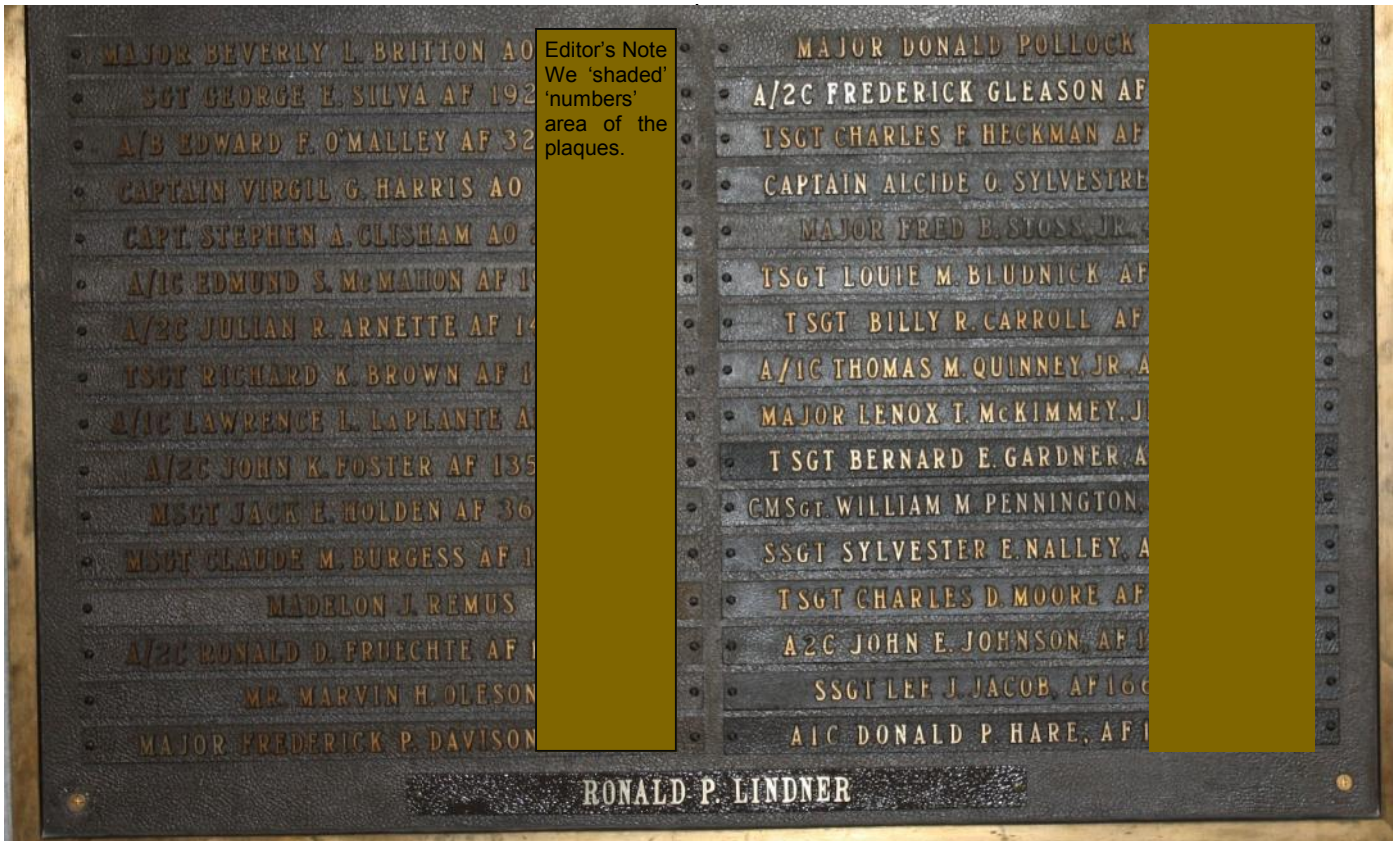 MAJOR BEVERLY L. BRITTON AO
SGT GEORGE E. SILVA AF 192
A/B EDWARD F. O'MALLEY AF 32
CAPTAIN VIRGIL G. HARRIS AO
CAPT. STEPHEN A. CLISHAM AO
A/1C EDMUND S. McMAHON AF 19
A/2C JULIAN R. ARNETTE AF 14
TSGT RICHARD K. BROWN AF 1
A/1C LAWRENCE L. LAPLANTE A
A/2C JOHN K. FOSTER AF 135
MSGT JACK E. HOLDEN AF 36
MSGT CLAUDE M. BURGESS AF 1
MADELON J. REMUS
A/2C RONALD D. FRUECHTE AF
MR. MARVIN H. OLESON
MAJOR FREDERICK P. DAVISON
Editor's Note
We 'shaded'
'numbers'
area of the
plaques.
MAJOR DONALD POLLOCK
A/2C FREDERICK GLEASON AF
TSGT CHARLES F. HECKMAN AF
CAPTAIN ALCIDE O. SYLVESTRE
MAJOR FRED B. STOSS, JR.,
TSGT LOUIE M. BLUDNICK AF
T SGT BILLY R. CARROLL AF
A/1C THOMAS M. QUINNEY, JR. A
MAJOR LENOX T. McKIMMEY, J
T SGT BERNARD E. GARDNER, A
CMSGT. WILLIAM M PENNINGTON,
SSGT SYLVESTER E. NALLEY, A
T SGT CHARLES D. MOORE AF
A2C JOHN E. JOHNSON, AF 1
SSGT LEE J. JACOB, AF 166
A1C DONALD P. HARE, AF 1
RONALD P. LINDNER